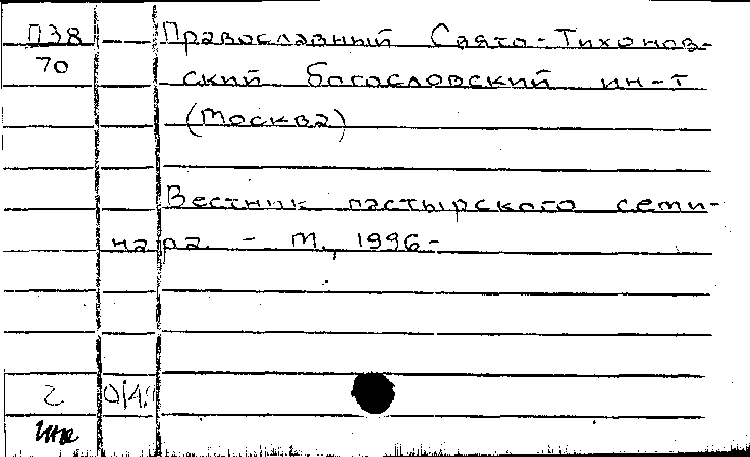 П38 Православный Свято-Тихонов-
70 ский богословский ин-т
(Москва)
Вестник пастырского семи-
нара. - М., 1996-
2